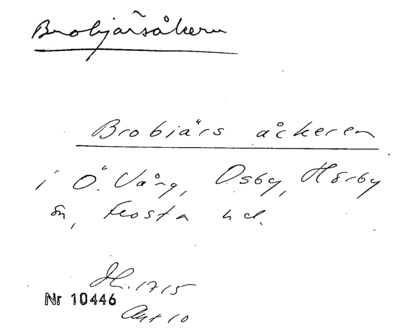 Brobjärsåkern
Brobiärs åckeren
i Ö. Vång, Osby, Hörby
sn, Frosta hd.
Nr 10446
Akt 10